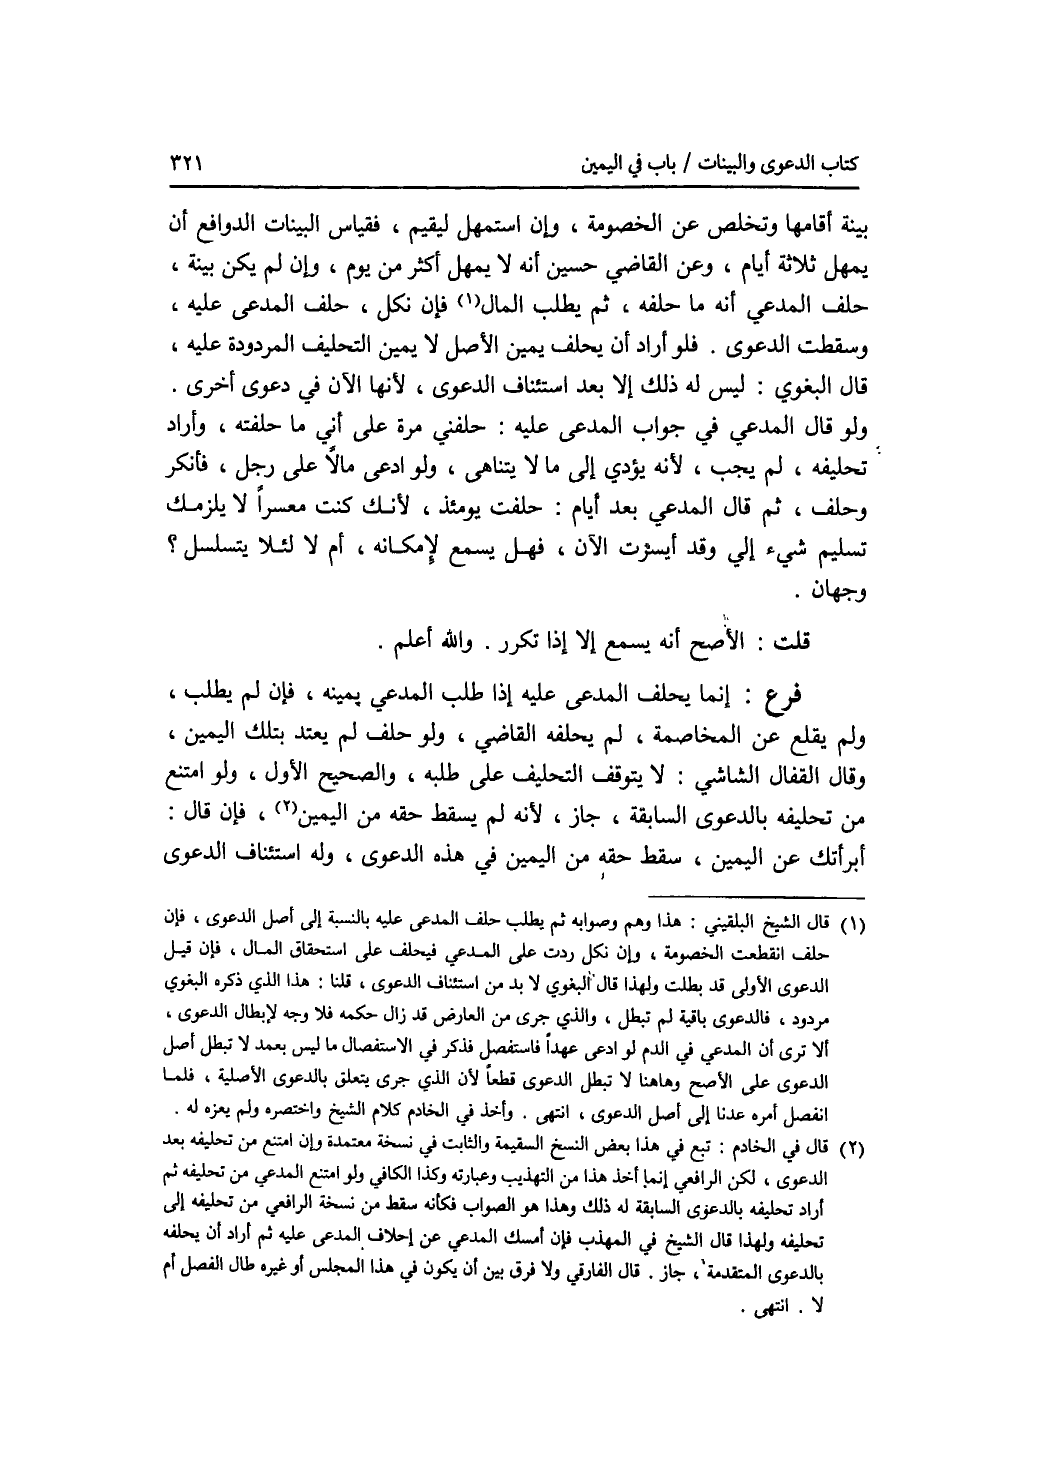 كتاب الدعوى والبينات / باب في اليمين ٣٢١
بينة أقامها وتخلص عن الخصومة ، وإن استمهل ليقيم ، فقياس البينات الدوافع أن
يمهل ثلاثة أيام ، وعن القاضي حسين أنه لا يمهل أكثر من يوم ، وإن لم يكن بينة ،
حلف المدعي أنه ما حلفه ، ثم يطلب المال(١) فإن نكل ، حلف المدعى عليه ،
وسقطت الدعوى . فلو أراد أن يحلف يمين الأصل لا يمين التحليف المردودة عليه ،
قال البغوي : ليس له ذلك إلا بعد استئناف الدعوى ، لأنها الآن في دعوى أخرى .
ولو قال المدعي في جواب المدعى عليه : حلفني مرة على أني ما حلفته ، وأراد
تحليفه ، لم يجب ، لأنه يؤدي إلى ما لا يتناهى ، ولو ادعى مالاً على رجل ، فأنكر
وحلف ، ثم قال المدعي بعد أيام : حلفت يومئذ ، لأنك كنت معسراً لا يلزمك
تسليم شيء إلي وقد أيسرت الآن ، فهل يسمع لإمكانه ، أم لا لئلا يتسلسل ؟
وجهان .
قلت : الأصح أنه يسمع إلا إذا تكرر . والله أعلم .
فرع : إنما يحلف المدعى عليه إذا طلب المدعي يمينه ، فإن لم يطلب ،
ولم يقلع عن المخاصمة ، لم يحلفه القاضي ، ولو حلف لم يعتد بتلك اليمين ،
وقال القفال الشاشي : لا يتوقف التحليف على طلبه ، والصحيح الأول ، ولو امتنع
من تحليفه بالدعوى السابقة ، جاز ، لأنه لم يسقط حقه من اليمين(٢) ، فإن قال :
أبرأتك عن اليمين ، سقط حقه من اليمين في هذه الدعوى ، وله استئناف الدعوى
(١) قال الشيخ البلقيني : هذا وهم وصوابه ثم يطلب حلف المدعى عليه بالنسبة إلى أصل الدعوى ، فإن
حلف انقطعت الخصومة ، وإن نكل ردت على المدعي فيحلف على استحقاق المال ، فإن قيل
الدعوى الأولى قد بطلت ولهذا قال البغوي لا بد من استئناف الدعوى ، قلنا : هذا الذي ذكره البغوي
مردود ، فالدعوى باقية لم تبطل ، والذي جرى من العارض قد زال حكمه فلا وجه لإبطال الدعوى ،
ألا ترى أن المدعي في الدم لو ادعى عهداً فاستفصل فذكر في الاستفصال ما ليس بعمد لا تبطل أصل
الدعوى على الأصح وهاهنا لا تبطل الدعوى قطعاً لأن الذي جرى يتعلق بالدعوى الأصلية ، فلما
انفصل أمره عدنا إلى أصل الدعوى ، انتهى . وأخذ في الخادم كلام الشيخ واختصره ولم يعزه له .
(٢) قال في الخادم : تبع في هذا بعض النسخ السقيمة والثابت في نسخة معتمدة وإن امتنع من تحليفه بعد
الدعوى ، لكن الرافعي إنما أخذ هذا من التهذيب وعبارته وكذا الكافي ولو امتنع المدعي من تحليفه ثم
أراد تحليفه بالدعوى السابقة له ذلك وهذا هو الصواب فكأنه سقط من نسخة الرافعي من تحليفه إلى
تحليفه ولهذا قال الشيخ في المهذب فإن أمسك المدعي عن إحلاف المدعى عليه ثم أراد أن يحلفه
بالدعوى المتقدمة ، جاز . قال الفارقي ولا فرق بين أن يكون في هذا المجلس أو غيره طال الفصل أم
لا . انتهى .